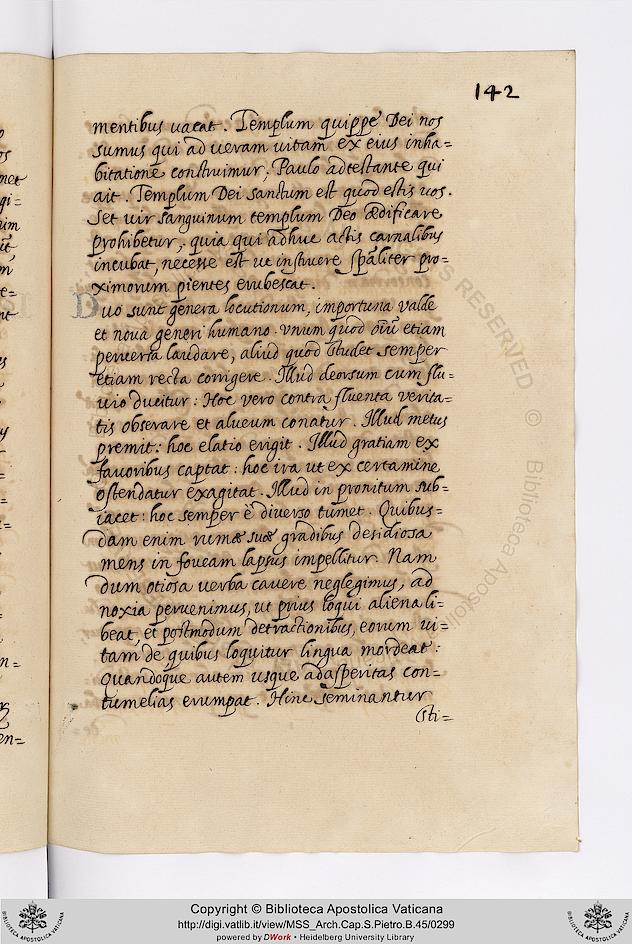 142
mentibus uacat. Templum quippe Dei nos
sumus qui ad ueram uitam ex eius inha=
bitatione construimur, Paulo adtestante qui
ait. Templum Dei sanctum est quod estis uos.
Set uir sanguinum templum Deo ædificare
prohibetur, quia qui adhuc actis carnalibus
incubat, necesse est ut instruere spāliter pro=
ximorum mentes erubescat.
Duo sunt genera locutionum, importuna valde
et noxa generi humano. vnum quod oīū etiam
peruersa laudare, aliud quod studet semper
etiam recta corrigere. Illud deorsum cum flu=
uio ducitur: Hoc vero contra fluenta verita=
tis obserare et alueum conatur. Illud metus
premit: hoc elatio erigit. Illud gratiam ex
fauoribus captat: hoc ira ut ex certamine
ostendatur exagitat. Illud in promtum sub=
iacet: hoc semper è diuerso tumet. Quibus=
dam enim ruinæ suæ gradibus desidiosa
mens in foueam lapsus impellitur. Nam
dum otiosa uerba cauere neglegimus, ad
noxia peruenimus, ut prius loqui aliena li=
beat, et postmodum detractionibus, eorum ui=
tam de quibus loquitur lingua mordeat:
Quandoque autem usque ad asperitas con=
tumelias erumpat. Hinc seminantur
sti=
RESERVED © Biblioteca Apostoli
Copyright © Biblioteca Apostolica Vaticana
http://digi.vatlib.it/view/MSS_Arch.Cap.S.Pietro.B.45/0299
powered by DWork • Heidelberg University Library